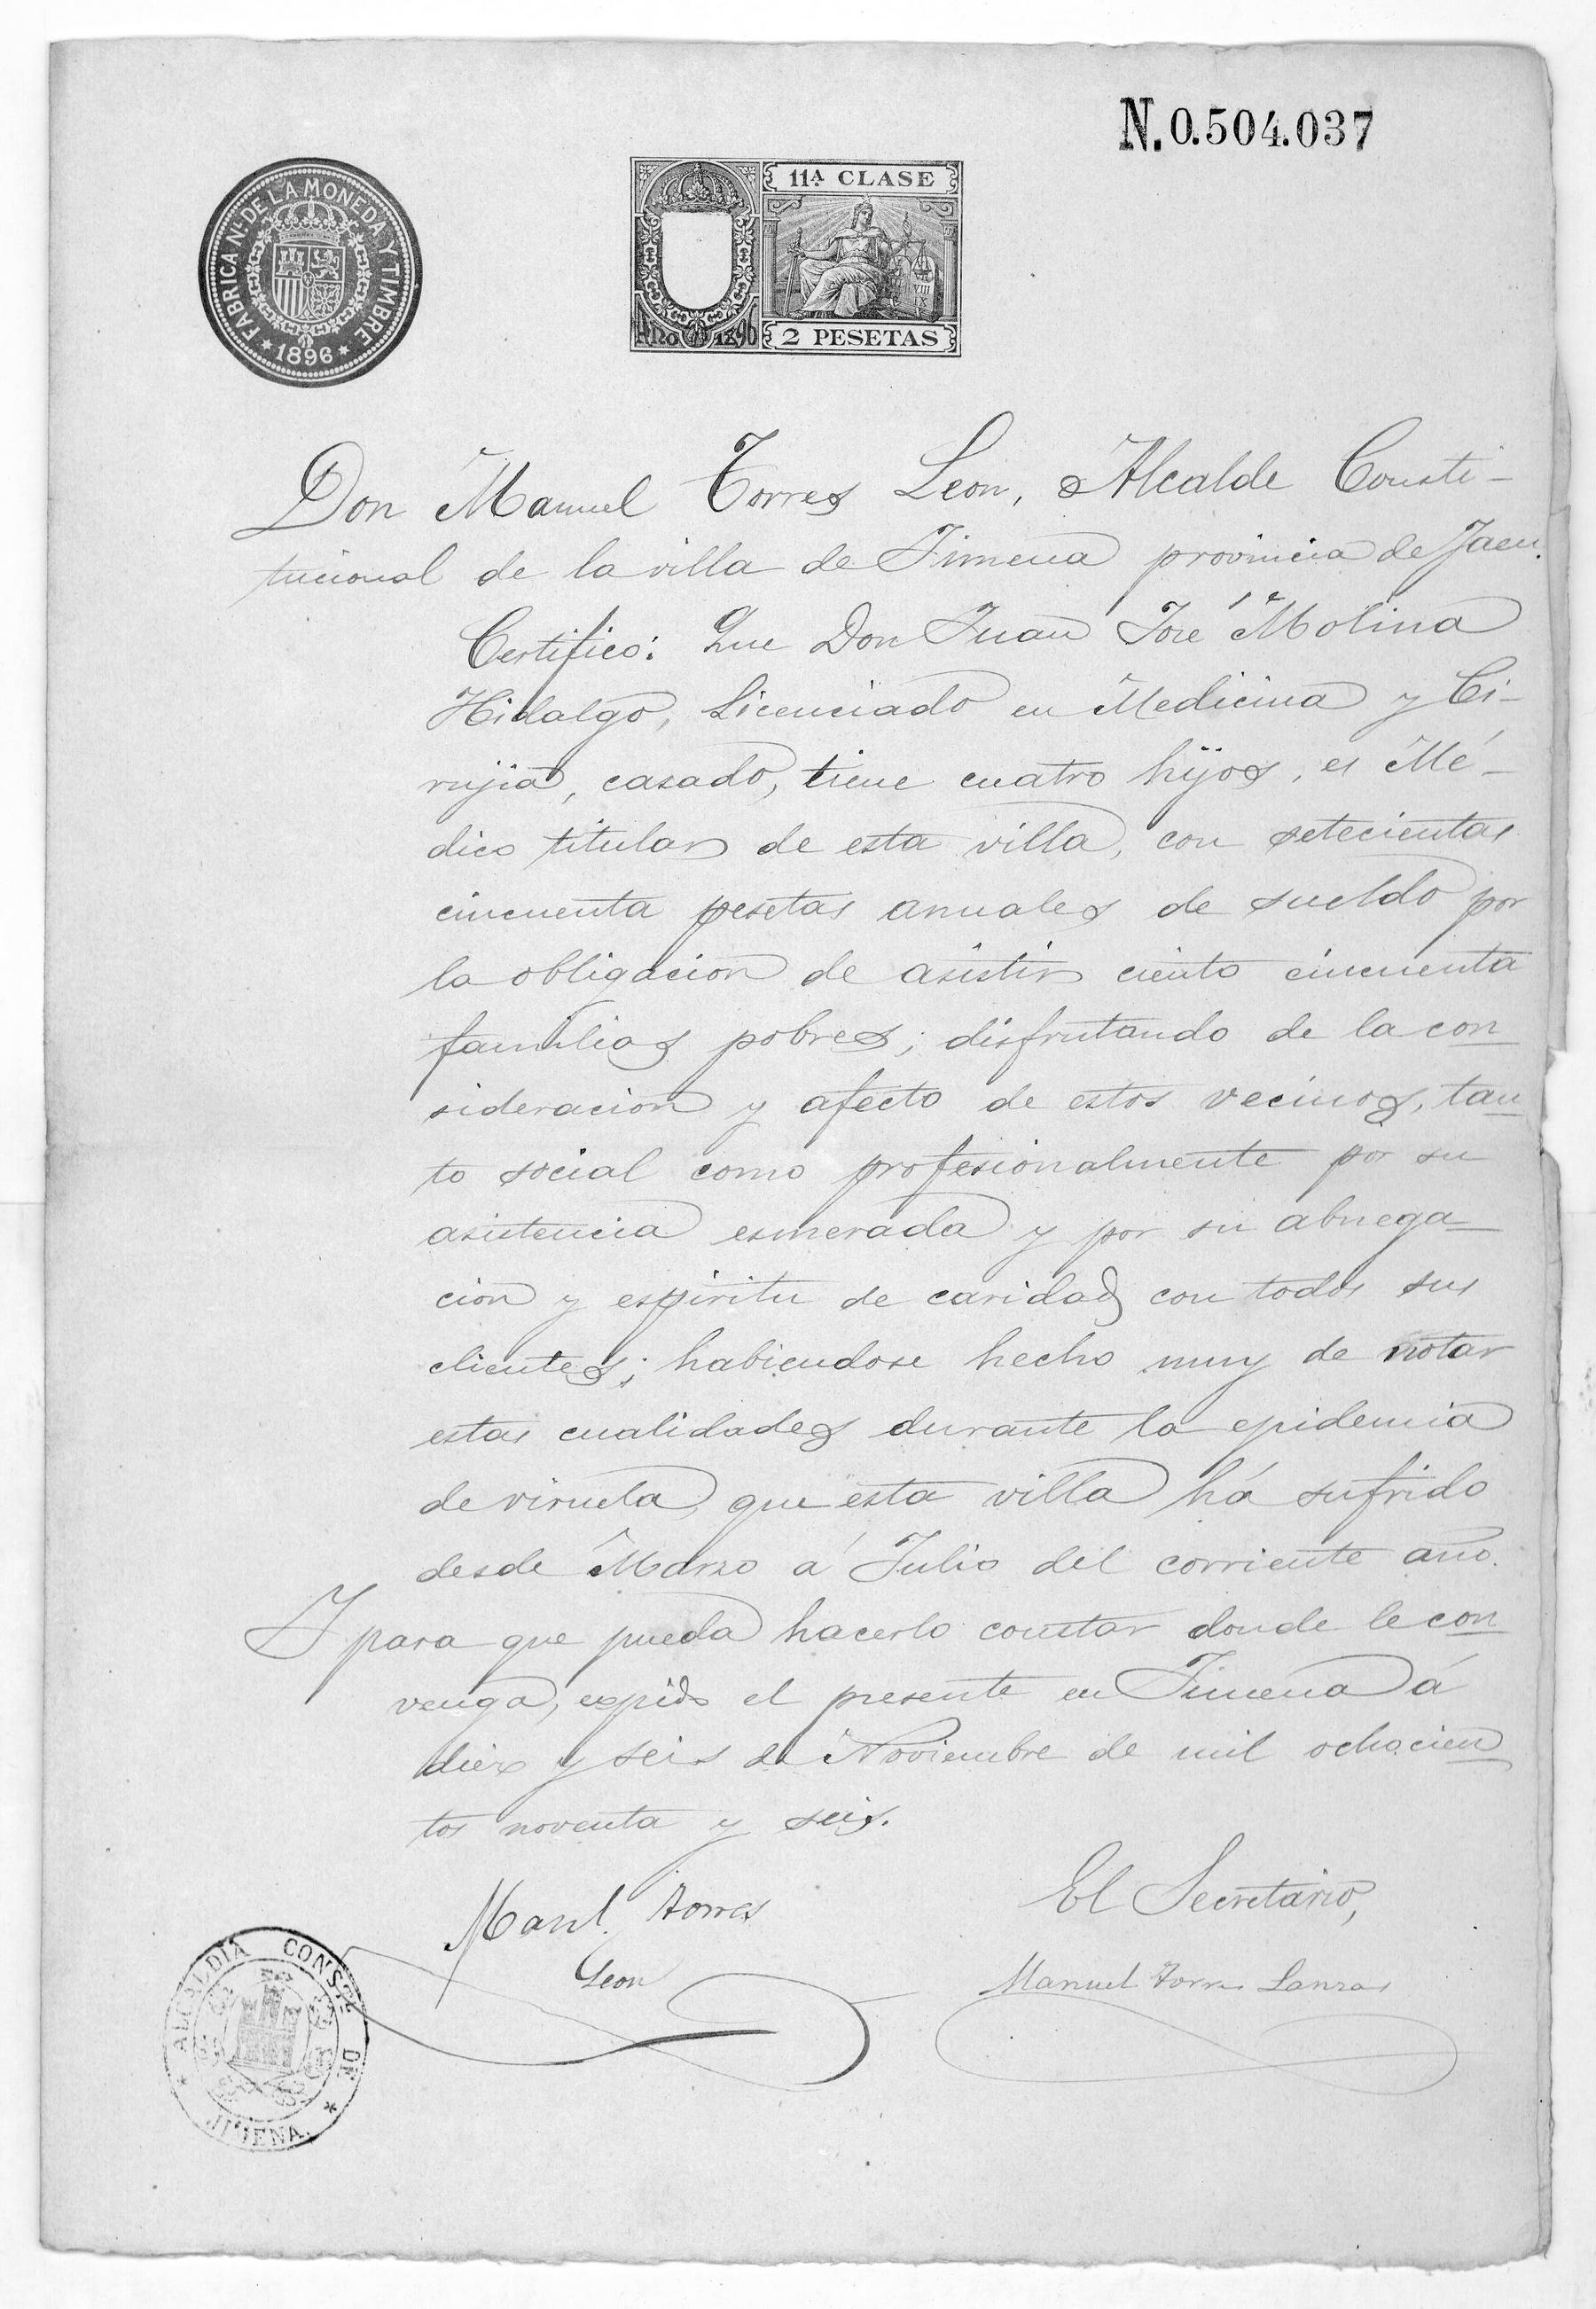 N. 0.504.037
FABRICA Nᴸ DE LA MONEDA Y TIMBRE
* 1896 *
11ᴬ CLASE
VIII
IX
AÑO 1896
2 PESETAS
Don Manuel Torres Leon, Alcalde Consti-
tucional de la villa de Jimena provincia de Jaen.
Certifico: Que Don Juan José Molina
Hidalgo, Licenciado en Medicina y Ci-
rujia, casado, tiene cuatro hijos, es Mé-
dico titular de esta villa, con setecientas
cincuenta pesetas anuales de sueldo por
la obligacion de asistir ciento cincuenta
familias pobres; disfrutando de la con
sideracion y afecto de estos vecinos, tan
to social como profesionalmente por su
asistencia esmerada y por su abnega-
cion y espiritu de caridad con todos sus
clientes; habiendose hecho muy de notar
estas cualidades durante la epidemia
de viruela que esta villa há sufrido
desde Marzo á Julio del corriente año.
Y para que pueda hacerlo constar donde le con
venga, expido el presente en Jimena á
diez y seis de Noviembre de mil ochocien
tos noventa y seis.
Manl. Torres
Leon
El Secretario,
Manuel Torres Lanzas
ALCALDIA CONSTL DE
* JIMENA *